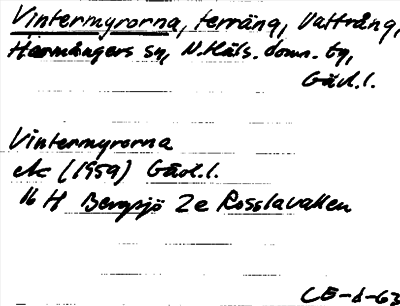 Vintermyrorna, terräng, Vattrång,
Harmångers sn, N. Häls. doms. tg,
Gävl.l.
Vintermyrorna
ek (1959) Gävl.l.
16 H Bergsjö 2e Rosslavallen